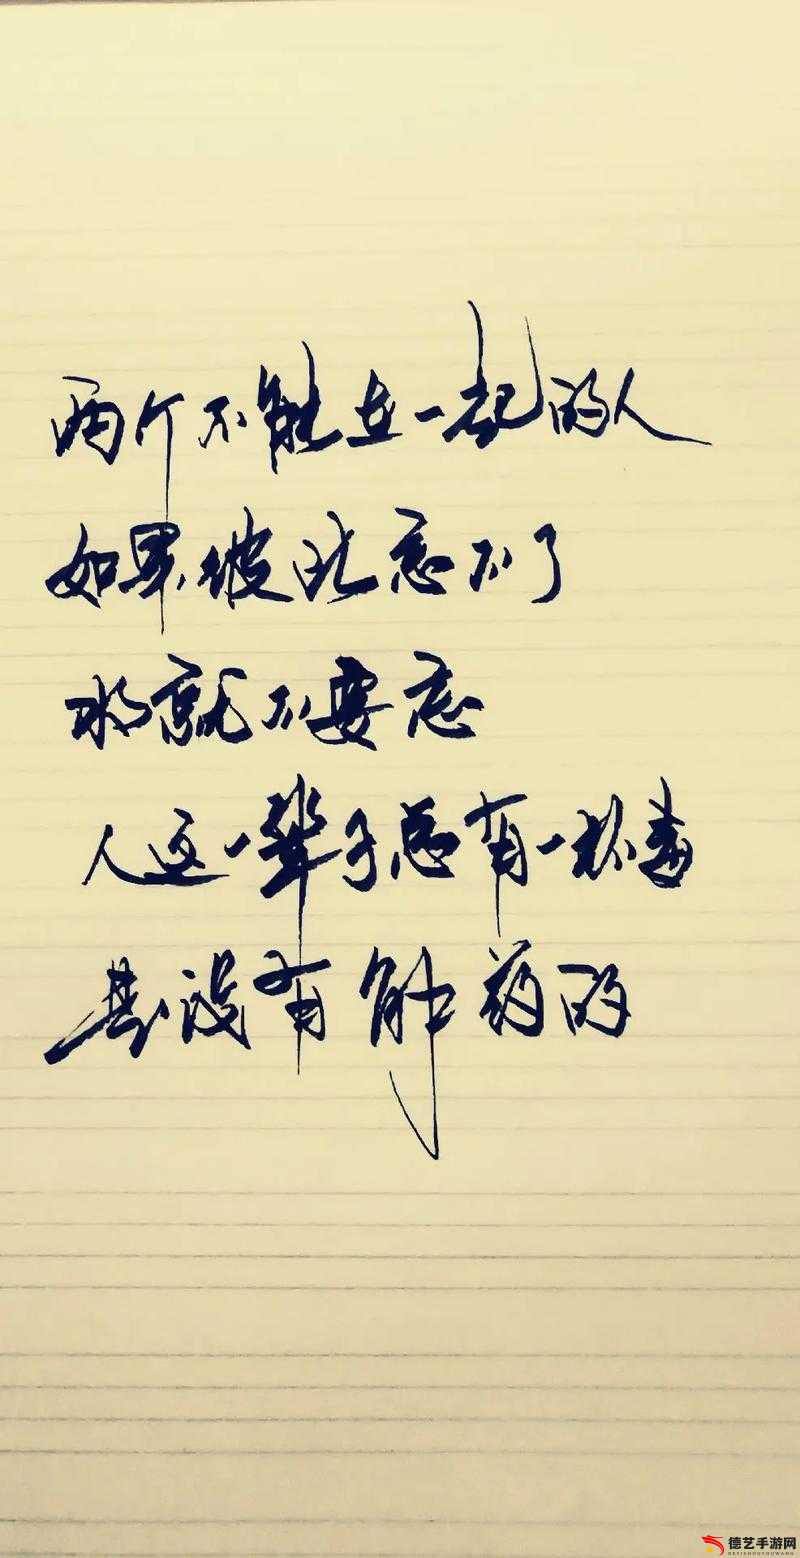 两个不能在一起的人
如果彼此忘不了
永就不要忘
人这一辈子总有一杯毒
是没有解药的
德艺手游网
DEYISHOUYOUWANG